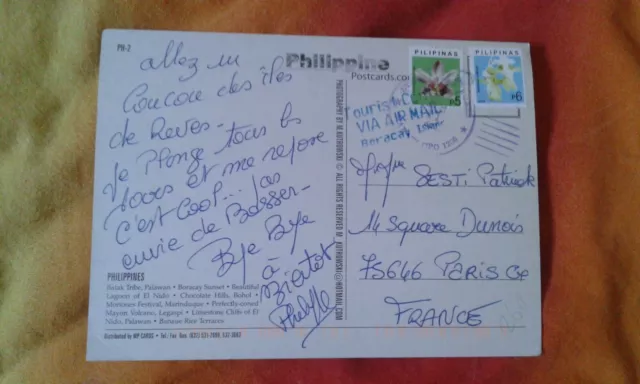 PH-2
allez un
Coucou des îles
de Reves-
Je Plonge tous les
Jours et me repose
C'est Cool... pas
envie de Bosser-
Bye Bye
à
Bientot
Philippe
PHILIPPINES
Batak Tribe, Palawan • Boracay Sunset • Beautiful
Lagoon of El Nido • Chocolate Hills, Bohol •
Moriones Festival, Marinduque • Perfectly-coned
Mayon Volcano, Legaspi • Limestone Cliffs of El
Nido, Palawan • Banaue Rice Terraces
Distributed by MP CARDS • Tel / Fax Nos. (632) 521-7898, 532-3983
Philippine
Postcards.com
PHOTOGRAPHY BY M AUTHOWSKI © ALL RIGHTS RESERVED M_AUTHOWSKI@HOTMAIL.COM
PILIPINAS
P5
PILIPINAS
P6
Tourist
VIA AIR MAIL
Boracay
SESTI Patrick
14 Square Dunois
75646 PERIS
FRANCE